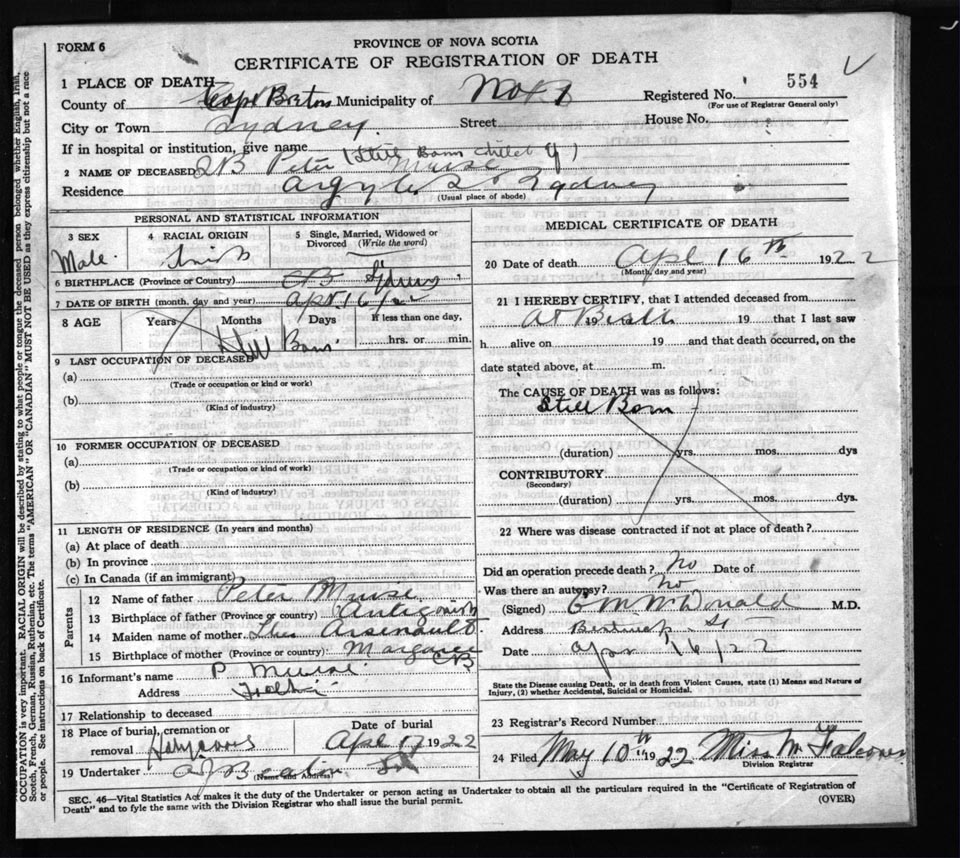 FORM 6
PROVINCE OF NOVA SCOTIA
CERTIFICATE OF REGISTRATION OF DEATH
1 PLACE OF DEATH
County of Cape Breton Municipality of No. 1 Registered No. 554
(For use of Registrar General only)
City or Town Sydney Street House No.
If in hospital or institution, give name (Still Born child of)
2 NAME OF DECEASED SB Peter Muise
Residence Argyle St Sydney
(Usual place of abode)
PERSONAL AND STATISTICAL INFORMATION
3 SEX Male.
4 RACIAL ORIGIN
5 Single, Married, Widowed or Divorced (Write the word)
6 BIRTHPLACE (Province or Country) CB Sydney
7 DATE OF BIRTH (month, day and year) Apr 16/22
8 AGE Years Months Days If less than one day,
Still Born hrs. or min.
9 LAST OCCUPATION OF DECEASED
(a)
(Trade or occupation or kind or work)
(b)
(Kind of industry)
10 FORMER OCCUPATION OF DECEASED
(a)
(Trade or occupation or kind or work)
(b)
(Kind of industry)
11 LENGTH OF RESIDENCE (In years and months)
(a) At place of death
(b) In province
(c) In Canada (if an immigrant)
Parents
12 Name of father Peter Muise
13 Birthplace of father (Province or country) Antigonish
14 Maiden name of mother Arsenault
15 Birthplace of mother (Province or country) Margaree CB
16 Informant's name P Muise
Address
17 Relationship to deceased
18 Place of burial, cremation or removal Date of burial
Holy Cross April 17 1922
19 Undertaker AJ Beaton
(Name and Address)
MEDICAL CERTIFICATE OF DEATH
20 Date of death Apl 16th 1922
(Month, day and year)
21 I HEREBY CERTIFY, that I attended deceased from
At Birth 19 19 that I last saw
h alive on 19 and that death occurred, on the
date stated above, at m.
The CAUSE OF DEATH was as follows:
Still Born
(duration) yrs. mos. dys
CONTRIBUTORY
(Secondary)
(duration) yrs. mos. dys.
22 Where was disease contracted if not at place of death?
Did an operation precede death? No Date of
Was there an autopsy? No
(Signed) McDonald M.D.
Address St
Date Apr 16/22
State the Disease causing Death, or in death from Violent Causes, state (1) Means and Nature of Injury, (2) whether Accidental, Suicidal or Homicidal.
23 Registrar's Record Number
24 Filed May 10th 1922 Miss M Falconer
Division Registrar
SEC. 46—Vital Statistics Act makes it the duty of the Undertaker or person acting as Undertaker to obtain all the particulars required in the "Certificate of Registration of
Death" and to fyle the same with the Division Registrar who shall issue the burial permit. (OVER)
OCCUPATION is very important. RACIAL ORIGIN will be described by stating to what people or tongue the deceased person belonged whether English, Irish,
Scotch, French, German, Russian, Ruthenian, etc. The terms "AMERICAN" OR "CANADIAN" MUST NOT BE USED as they express citizenship but not a race
or people. See instructions on back of Certificate.